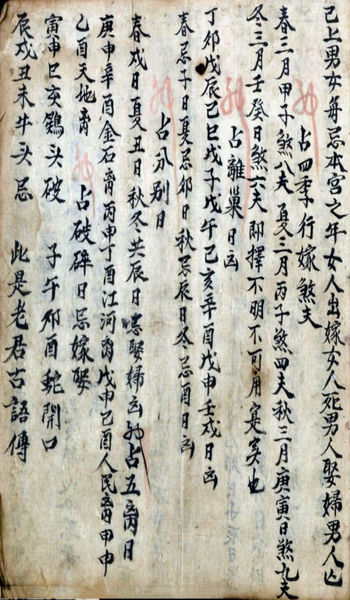 已上男女每忌本宮之年女人出嫁女人死男人娶婦男人亾
占四季行嫁煞支
春三月甲子煞八夫夏三月丙子煞四夫秋三月庚寅日煞九夫
冬三月壬癸日煞六夫即擇不明不可用寔矣也
占離巢日凶
丁卯戊辰己巳戊子戊午己亥辛酉戊申壬戌日凶
春忌子日夏忌卯日秋忌辰日冬忌酉日凶
占分別日
春戌日夏丑日秋冬共辰日娶婦凶 占五离日
庚申辛酉金石离丙申丁酉江河离戊申己酉人民离甲申
乙酉天地离 占破碎日忌嫁娶
寅申巳亥鷄头破 子午卯酉蛇開口
辰戌丑未牛头忌 此是老君古語傳